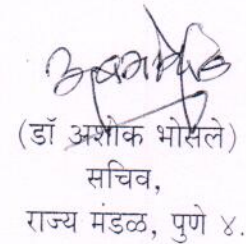 (डॉ अशोक भोसले)
सचिव,
राज्य मंडळ, पुणे ४.